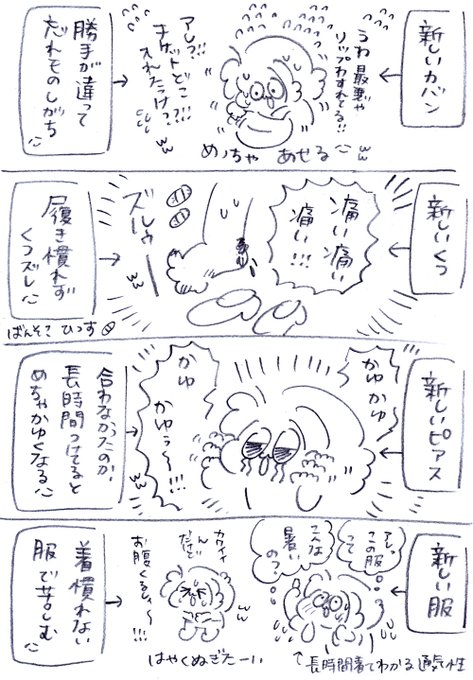 新しいカバン
うわ最悪や
リップわすれてる!!
アレ?!!
チケットどこ
入れたっけ?!!!
めっちゃ あせる
勝手が違って
忘れものしがち
新しいくつ
痛い痛い
痛い!!!
ズルゥーー
履き慣れず
くつズレ
ばんそこ ひっす
新しいピアス
かゆかゆ
かゆ
かゆぅ〜〜!!!
合わなかったのか、
長時間つけてると
めちゃかゆくなる
新しい服
アレ?
この服
って
こんな
暑い
の?
↑長時間着てわかる通気性
カワイイ
んだ
けど
お腹くるしぃ〜!!!
はやくぬぎたーい
着慣れない
服で苦しむ